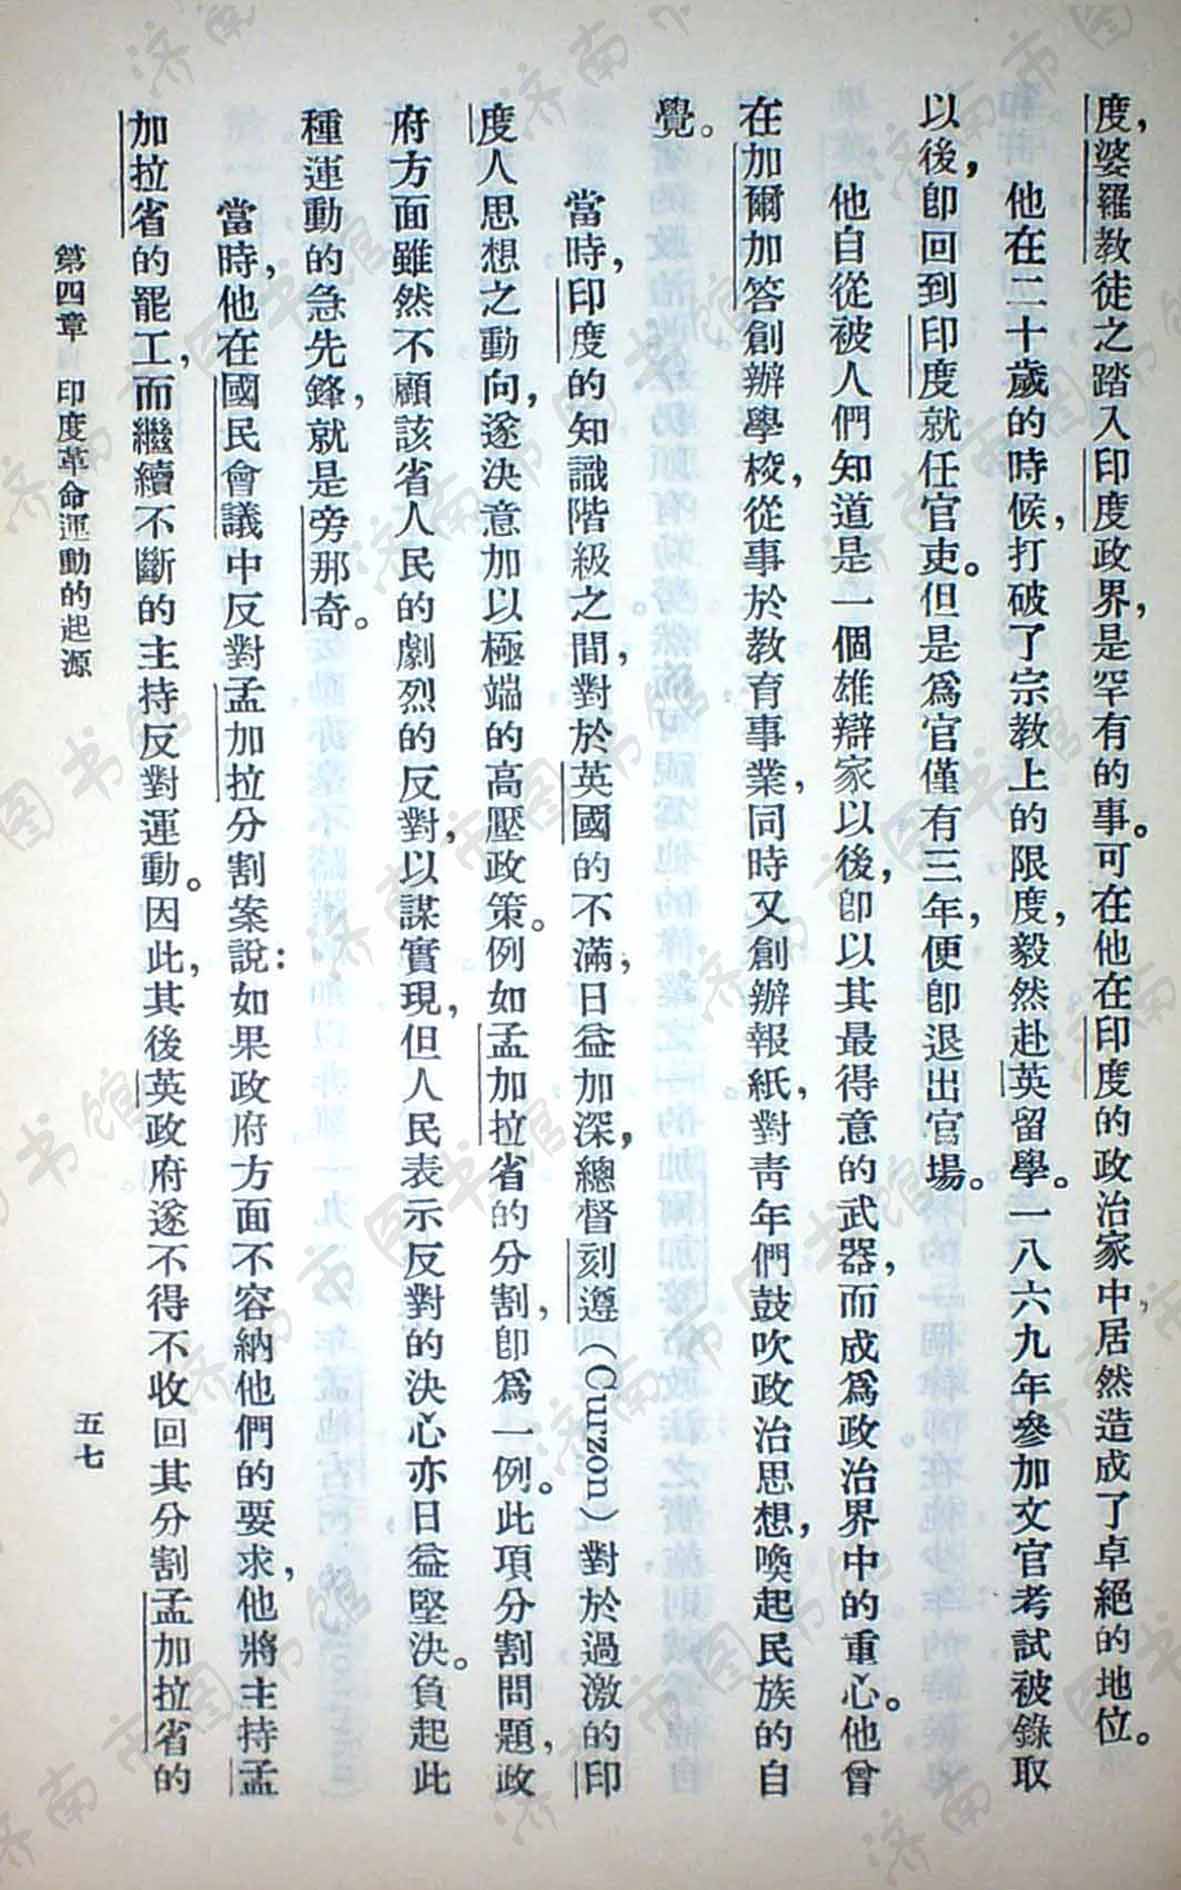 度，婆羅教徒之踏入印度政界，是罕有的事。可在他在印度的政治家中，居然造成了卓絕的地位。
他在二十歲的時候，打破了宗教上的限度，毅然赴英留學。一八六九年參加文官考試被錄取
以後，卽回到印度就任官吏。但是爲官僅有三年，便卽退出官場。
他自從被人們知道是一個雄辯家以後，卽以其最得意的武器，而成爲政治界中的重心。他曾
在加爾加答創辦學校，從事於教育事業，同時又創辦報紙，對靑年們鼓吹政治思想，喚起民族的自
覺。
當時，印度的知識階級之間，對於英國的不滿，日益加深，總督刻遵（Curzon）對於過激的印
度人思想之動向，遂決意加以極端的高壓政策。例如孟加拉省的分割，卽爲一例。此項分割問題，政
府方面雖然不顧該省人民的劇烈的反對，以謀實現，但人民表示反對的決心亦日益堅決。負起此
種運動的急先鋒，就是旁那奇。
當時，他在國民會議中反對孟加拉分割案說：如果政府方面不容納他們的要求，他將主持孟
加拉省的罷工，而繼續不斷的主持反對運動。因此，其後英政府遂不得不收回其分割孟加拉省的
第四章　印度革命運動的起源
五七
济南市图书馆